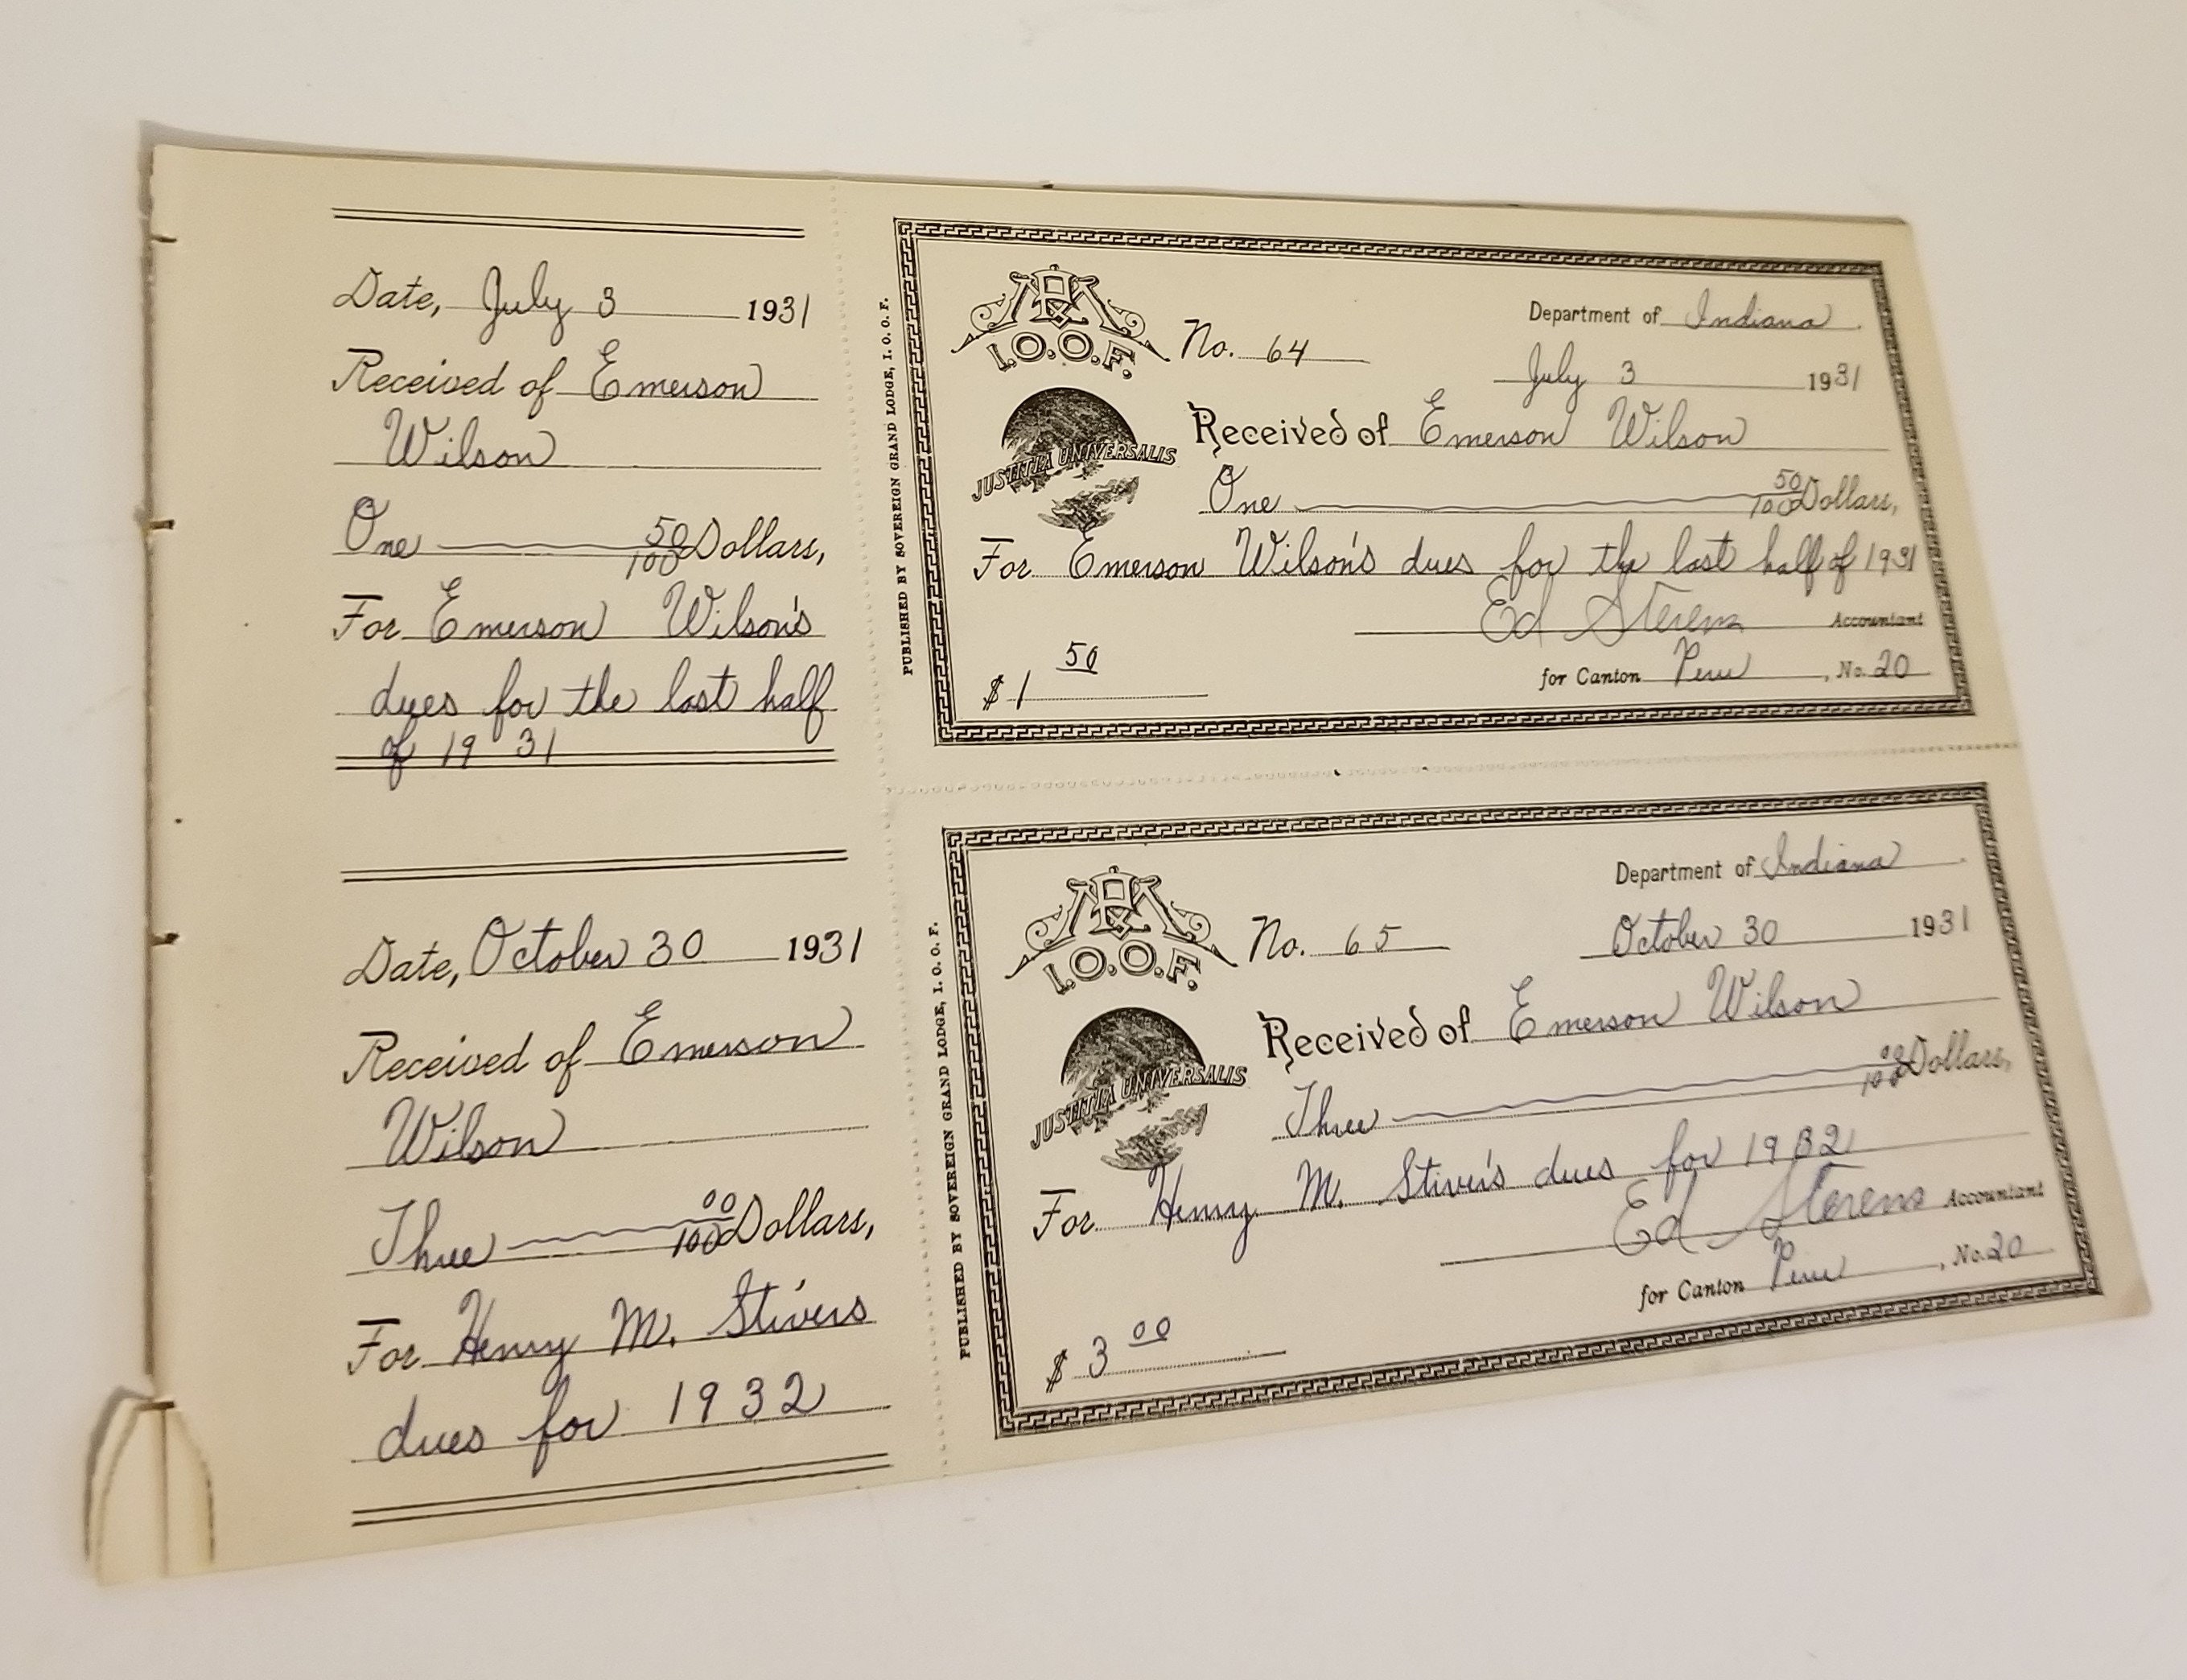 Date, July 3 1931
Received of Emerson
Wilson
One 50/100 Dollars,
For Emerson Wilson's
dues for the last half
of 1931
PUBLISHED BY SOVEREIGN GRAND LODGE, I. O. O. F.
I.O.O.F.
No. 64
Department of Indiana
July 3 1931
JUSTITIA UNIVERSALIS
Received of Emerson Wilson
One 50/100 Dollars,
For Emerson Wilson's dues for the last half of 1931
Ed Sterens Accountant
$1 50
for Canton Peru, No. 20
Date, October 30 1931
Received of Emerson
Wilson
Three 00/100 Dollars,
For Henry M. Stivers
dues for 1932
PUBLISHED BY SOVEREIGN GRAND LODGE, I. O. O. F.
I.O.O.F.
No. 65
Department of Indiana
October 30 1931
JUSTITIA UNIVERSALIS
Received of Emerson Wilson
Three 00/100 Dollars,
For Henry M. Stiver's dues for 1932
Ed Sterens Accountant
for Canton Peru, No. 20
$3 00